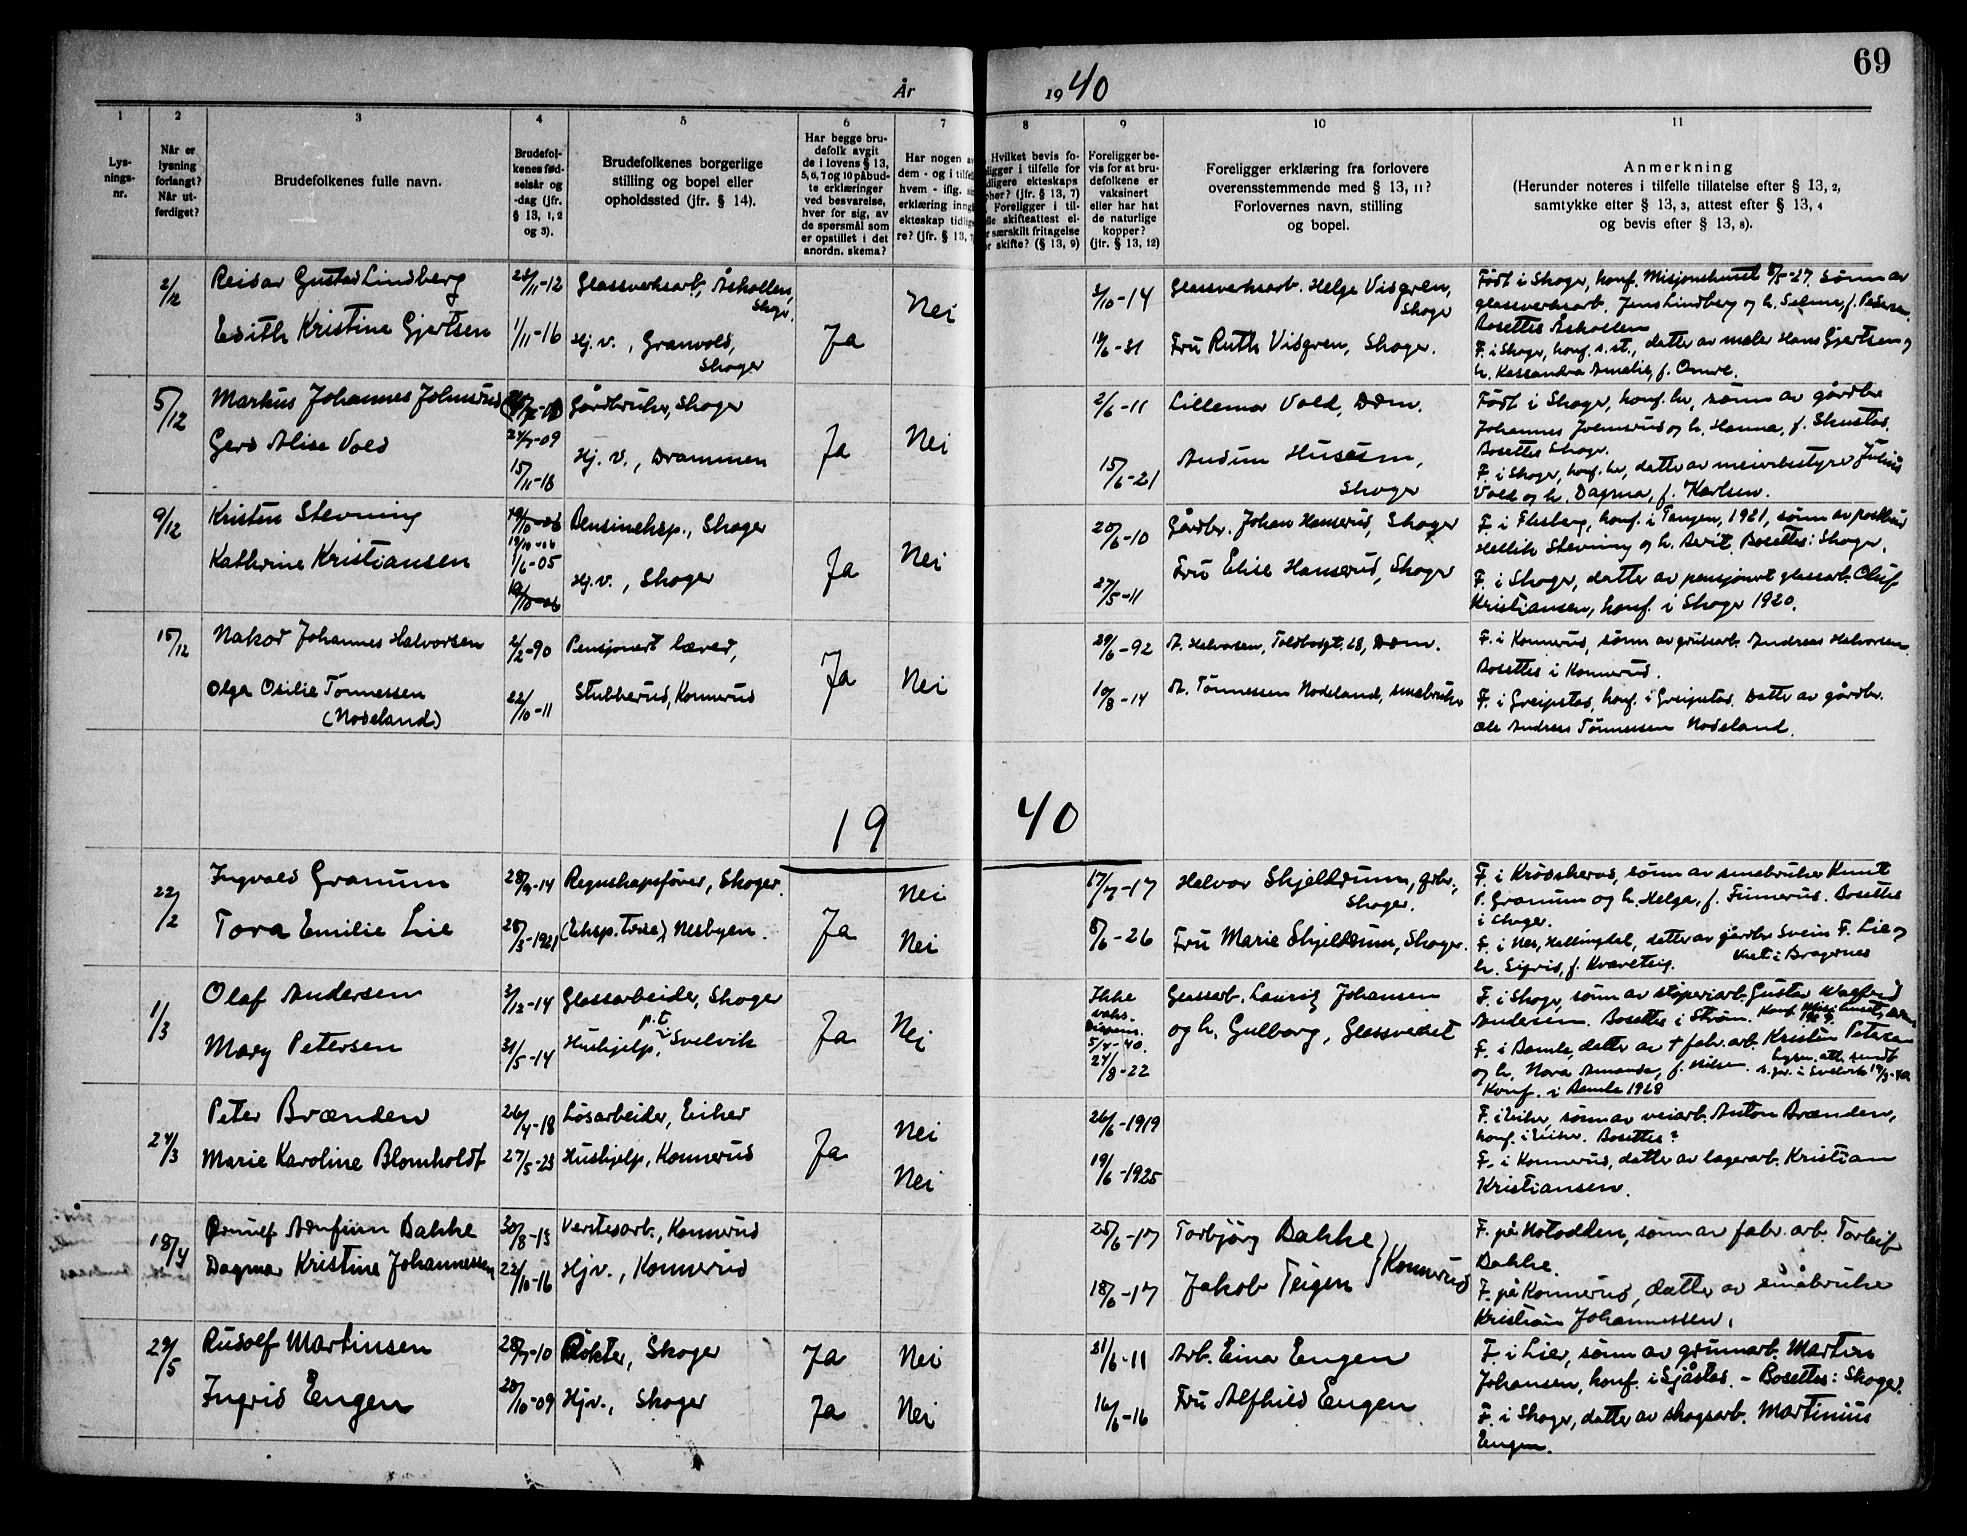 69
År 1940
1 2 3 4 5 6 7 8 9 10 11
Lys-
nings-
nr.
Når er
lysning
forlangt?
Når ut-
ferdiget?
Brudefolkenes fulle navn.
Brudefol-
kenes fød-
selsår og
-dag (jfr.
§ 13, 1, 2
og 3).
Brudefolkenes borgerlige
stilling og bopel eller
opholdssted (jfr. § 14).
Har begge bru-
defolk avgit
de i lovens § 13,
5, 6, 7 og 10 påbud-
te erklæringer
ved besvarelse,
hver for sig, av
de spørsmål som
er opstillet i det
anordn. skema?
Har nogen av
dem - og i tilfel
hvem - iflg. si
erklæring inng
ekteskap tidlig
re? (jfr. § 13,
Hvilket bevis fo-
ligger i tilfelle for
dligere ekteskaps
pher? (jfr. § 13, 7)
Foreligger i til-
lle skifteattest el-
r særskilt fritagelse
r skifte? (§ 13, 9)
Foreligger be-
vis for at bru-
defolkene er
vaksinert
eller har hat
de naturlige
kopper?
(jfr. § 13, 12)
Foreligger erklæring fra forlovere
overensstemmende med § 13, 11?
Forlovernes navn, stilling
og bopel.
Anmerkning
(Herunder noteres i tilfelle tillatelse efter § 13, 2,
samtykke efter § 13, 3, attest efter § 13, 4
og bevis efter § 13, 8).
2/12 Reidar Gustav Lindberg 11-12 Glassverksarb., Åskollen, Skoger.
Edith Kristine Gjertsen 1/11-16 Hj.v., Granvold, Skoger
Ja Nei
10-14 Glassverksarb. Helge Visgren, Skoger
6-31 Fru Ruth Visgren, Skoger.
Født i Skoger, konf. Misjonshuset 8/5-27, sønn av
glassverksarb. Jens Lindberg og h. Selma, f. Pedersen.
Bosettes Åskollen
F. i Skoger, konf. s.st., datter av maler Hans Gjertsen og
h. Kassandra Amalie, f. Omre.
5/12 Markus Johannes Johnsrud Gårdbruker, Skoger
Gerd Alise Vold 24/7-09
15/11-18 Hj.v., Drammen
Ja Nei
2/6-11 Lillemor Vold, Drm.
15/6-21 Audun Huseum, Skoger
Født i Skoger, konf. hr, sønn av gårdbr.
Johannes Johnsrud og h. Hanna, f. Skustad.
Bosettes Skoger.
F. i Skoger, konf. hr, datter av meieribestyrer Julius
Vold og h. Dagma, f. Karlsen.
9/12 Kristen Stevning 19/10-06 Bensineksp., Skoger
19/10-06
Katherine Kristiansen 1/6-05 Hj.v., Skoger
19/10-06
Ja Nei
20/6-10 Gårdbr. Johan Hanserud, Skoger
27/5-11 Fru Elise Hanserud, Skoger
F. i Flesberg, konf. i Tangen, 1921, sønn av postbud
Hellik Stevning og h. Berit. Bosettes: Skoger.
F. i Skoger, datter av pensjonert glassarb. Oluf
Kristiansen, konf. i Skoger 1920.
15/12 Nakod Johannes Halvorsen 2/2-90 Pensjonert lærer,
Olga Osilie Tønnessen 22/10-11 Stubberud, Konnerud
(Nodeland)
Ja Nei
29/6-92 A. Halvorsen, Toldbodgt. 28, Drm.
10/8-14 A. Tønnessen Nodeland, småbruker
F. i Konnerud, sønn av grubearb. Andreas Halvorsen.
Bosettes i Konnerud.
F. i Greipstad, konf. i Greipstad. Datter av gårdbr.
Ole Andreas Tønnessen Nodeland.
1940
22/2 Ingvald Granum 28/9-14 Regnskapsfører, Skoger.
Tora Emilie Lie 28/3-1921 (Eksp. Torie) Nesbyen.
Ja Nei
Nei
17/7-17 Halvor Skjeldrum, grbr., Skoger.
8/6-26 Fru Marie Skjeldrum, Skoger.
F. i Krødsherad, sønn av småbruker Knut
P. Granum og h. Helga, f. Finnerud. Bosettes
i Skoger.
F. i Nes, Hallingdal, datter av gårdbr Svein F. Lie og
h. Sigrid, f. Kvarteig. Viet i Bragernes
1/3 Olaf Andersen 3/12-14 Glassarbeider, Skoger
Mary Petersen 31/5-14 Hushjelp, p.t. i Svelvik
Ja Nei
Ikke
vaks.
Dispens.
5/4-40.
24/8-22
Glassarb. Lauritz Johansen
og h. Gulborg, Glassverket
F. i Skoger, sønn av støperiarb. Gustav Walfred
Andersen. Bosettes i Strøm.
F. i Bamle, datter av + fabr.arb. Kristen Petersen
og h. Nora Amanda, f. Nilsen.
Konf. i Bamle 1928
24/3 Peter Brænden 26/4-18 Løsarbeider, Eiker
Marie Karoline Blomholdt 27/5-23 Hushjelp, Konnerud
Ja Nei
Nei
26/6-1919
19/6-1925
F. i Eiker, sønn av veiarb. Anton Brænden,
konf. i Eiker. Bosettes?
F. i Konnerud, datter av lagerarb. Kristian
Kristiansen.
18/4 Ørnulf Arnfinn Bakke 30/8-13 Verstesarb., Konnerud
Dagmar Kristine Johannessen 22/10-16 Hjv., Konnerud
25/6-17 Torbjörg Bakke
18/6-17 Jakob Teigen } Konnerud
F. på Notodden, sønn av fabr. arb. Torleif
Bakke.
F. på Konnerud, datter av småbruker
Kristian Johannessen.
29/5 Rudolf Martinsen 28/7-10 Røkter, Skoger
Ingrid Engen 28/10-09 Hjv., Skoger
Ja Nei
Ja Nei
21/6-11 Arb. Einar Engen
16/6-16 Fru Alfhild Engen
F. i Lier, sønn av grunnarb. Martin
Johansen, konf. i Sjåstad. - Bosettes: Skoger.
F. i Skoger, datter av skogsarb. Martinius
Engen.